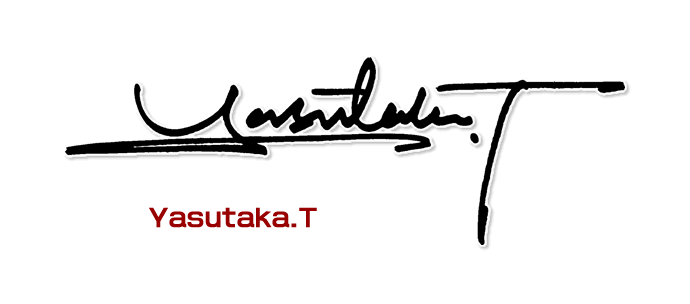 Yasutaka.T
Yasutaka.T